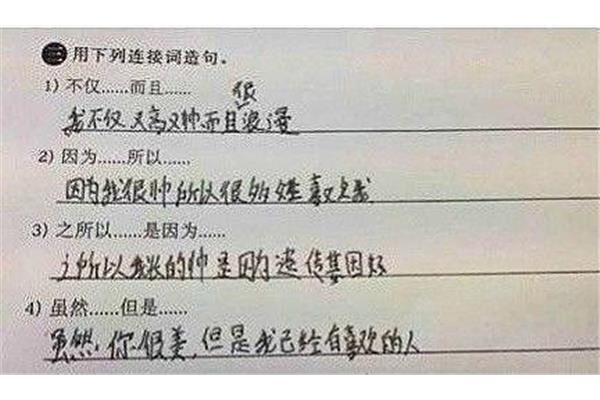 三 用下列连接词造句。
1) 不仅……而且……
我不仅又高又帅而且很浪漫
2) 因为……所以……
因为我很帅所以很多女生喜欢我
3) 之所以……是因为……
之所以我长的帅是因为遗传基因好
4) 虽然……但是……
虽然,你很美,但是我已经有喜欢的人